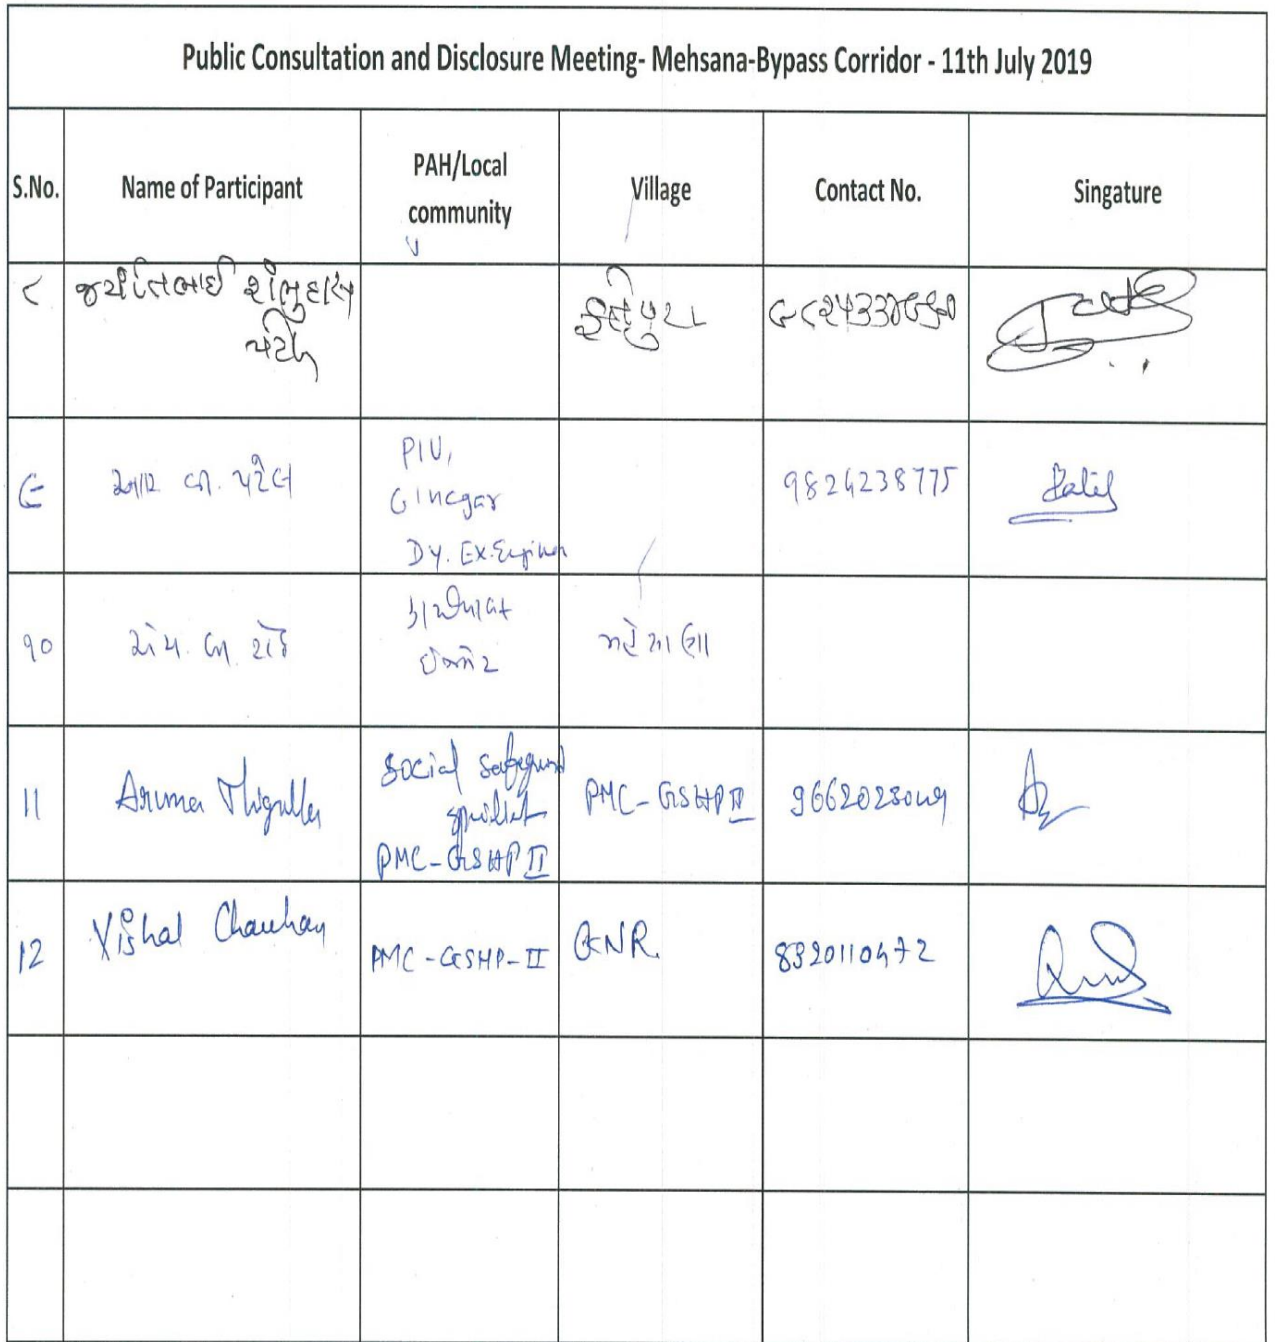 Public Consultation and Disclosure Meeting- Mehsana-Bypass Corridor - 11th July 2019
S.No. Name of Participant PAH/Local community Village Contact No. Singature
૮ જયંતિભાઈ શંભુદાસ
પટેલ
ફતેપુરા
૯ આર. બી. પટેલ
PIU,
G'nagar
Dy. Ex. Engineer
9824238775
Patel
૧૦ એમ. બી.
કાર્યપાલક
ઈજનેર
મહેસાણા
11 Aruna
social safeguard
PMC-GSHP II
PMC-GSHP II
12 Vishal Chauhan
PMC-GSHP-II
GNR.
8320110472